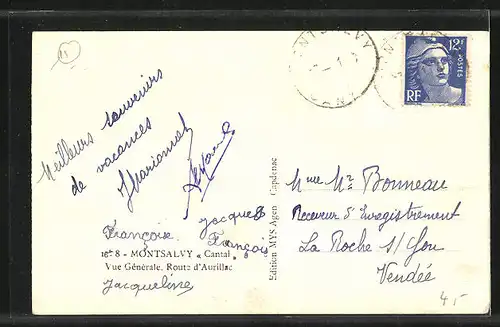 MONTSALVY
CANT
12F
POSTES
RF
Meilleurs souvenirs
de vacances
Jacques
Françoise
François
№ 8 - MONTSALVY « Cantal »
Vue Générale, Route d'Aurillac
Jacqueline
Edition MYS Agen - Capdenac
Mme Mr Bonneau
Receveur d'Enregistrement
La Roche s/Yon
Vendée
4,-